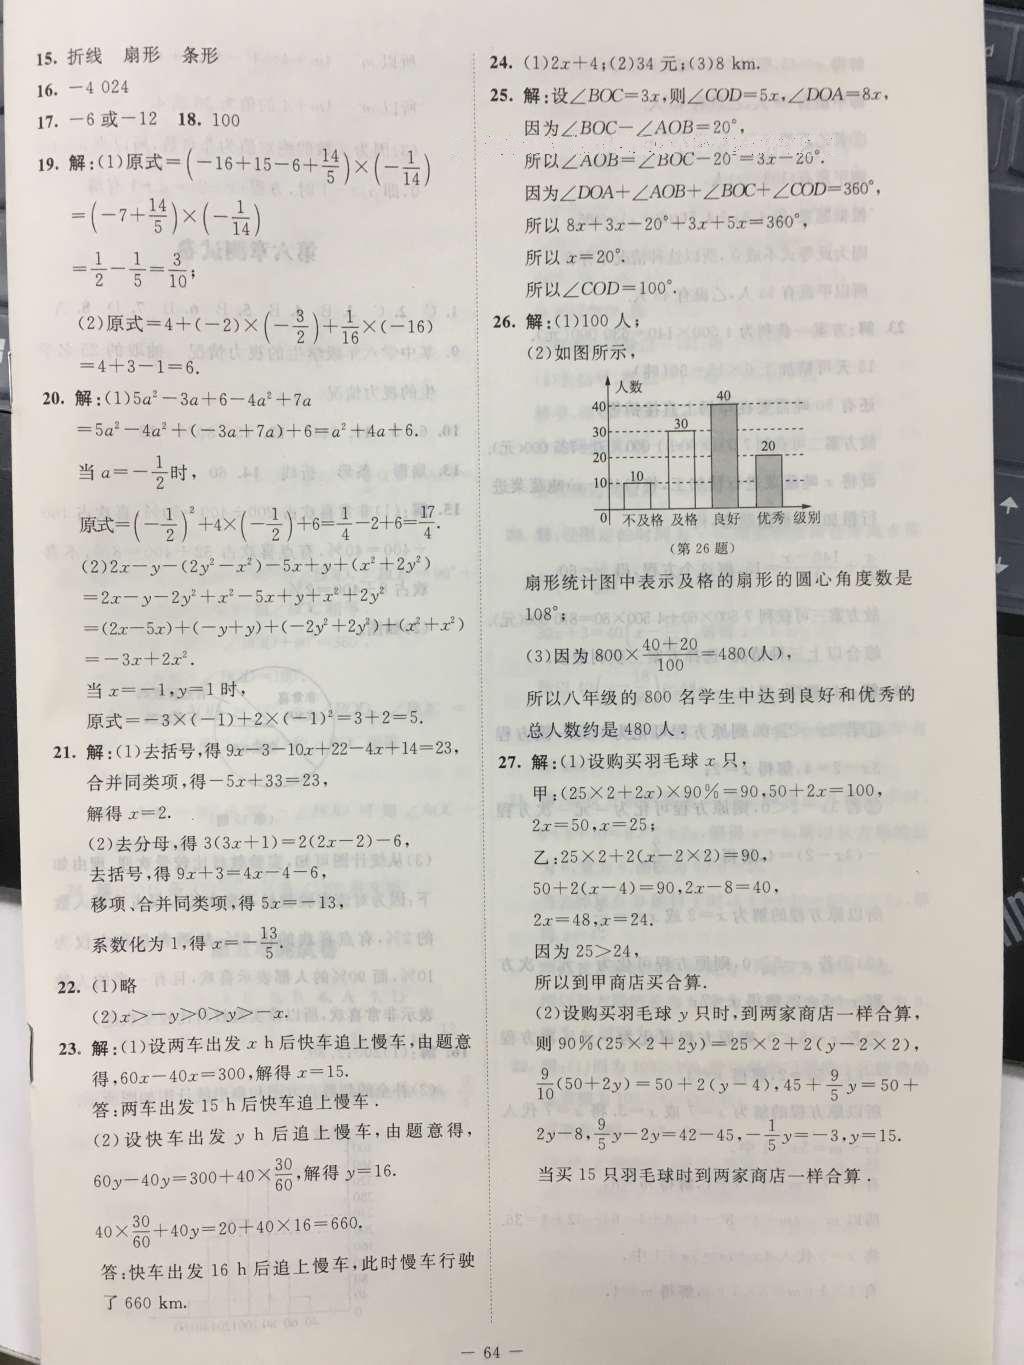 15. 折线　扇形　条形
16. －4 024
17. －6或－12　18. 100
19. 解:(1)原式=(－16+15－6+14/5)×(－1/14)
=(－7+14/5)×(－1/14)
=1/2－1/5=3/10;
(2)原式=4+(－2)×(－3/2)+1/16×(－16)
=4+3－1=6.
20. 解:(1)5a²－3a+6－4a²+7a
=5a²－4a²+(－3a+7a)+6=a²+4a+6.
当a=－1/2时,
原式=(－1/2)²+4×(－1/2)+6=1/4－2+6=17/4.
(2)2x－y－(2y²－x²)－5x+y+(x²+2y²)
=2x－y－2y²+x²－5x+y+x²+2y²
=(2x－5x)+(－y+y)+(－2y²+2y²)+(x²+x²)
=－3x+2x².
当x=－1,y=1时,
原式=－3×(－1)+2×(－1)²=3+2=5.
21. 解:(1)去括号,得9x－3－10x+22－4x+14=23,
合并同类项,得－5x+33=23,
解得x=2.
(2)去分母,得3(3x+1)=2(2x－2)－6,
去括号,得9x+3=4x－4－6,
移项、合并同类项,得5x=－13,
系数化为1,得x=－13/5.
22. (1)略
(2)x>－y>0>y>－x.
23. 解:(1)设两车出发x h后快车追上慢车,由题意
得,60x－40x=300,解得x=15.
答:两车出发15 h后快车追上慢车.
(2)设快车出发y h后追上慢车,由题意得,
60y－40y=300+40×30/60,解得y=16.
40×30/60+40y=20+40×16=660.
答:快车出发16 h后追上慢车,此时慢车行驶
了660 km.
24. (1)2x+4;(2)34元;(3)8 km.
25. 解:设∠BOC=3x,则∠COD=5x,∠DOA=8x,
因为∠BOC－∠AOB=20°,
所以∠AOB=∠BOC－20°=3x－20°.
因为∠DOA+∠AOB+∠BOC+∠COD=360°,
所以8x+3x－20°+3x+5x=360°,
所以x=20°.
所以∠COD=100°.
26. 解:(1)100人;
(2)如图所示,
人数
40
40
30
30
20
20
10
10
0　不及格　及格　良好　优秀　级别
(第26题)
扇形统计图中表示及格的扇形的圆心角度数是
108°;
(3)因为800×(40+20)/100=480(人),
所以八年级的800名学生中达到良好和优秀的
总人数约是480人.
27. 解:(1)设购买羽毛球x只,
甲:(25×2+2x)×90%=90,50+2x=100,
2x=50,x=25;
乙:25×2+2(x－2×2)=90,
50+2(x－4)=90,2x－8=40,
2x=48,x=24.
因为25>24,
所以到甲商店买合算.
(2)设购买羽毛球y只时,到两家商店一样合算,
则90%(25×2+2y)=25×2+2(y－2×2),
9/10(50+2y)=50+2(y－4),45+9/5y=50+
2y－8,9/5y－2y=42－45,－1/5y=－3,y=15.
当买15只羽毛球时到两家商店一样合算.
— 64 —